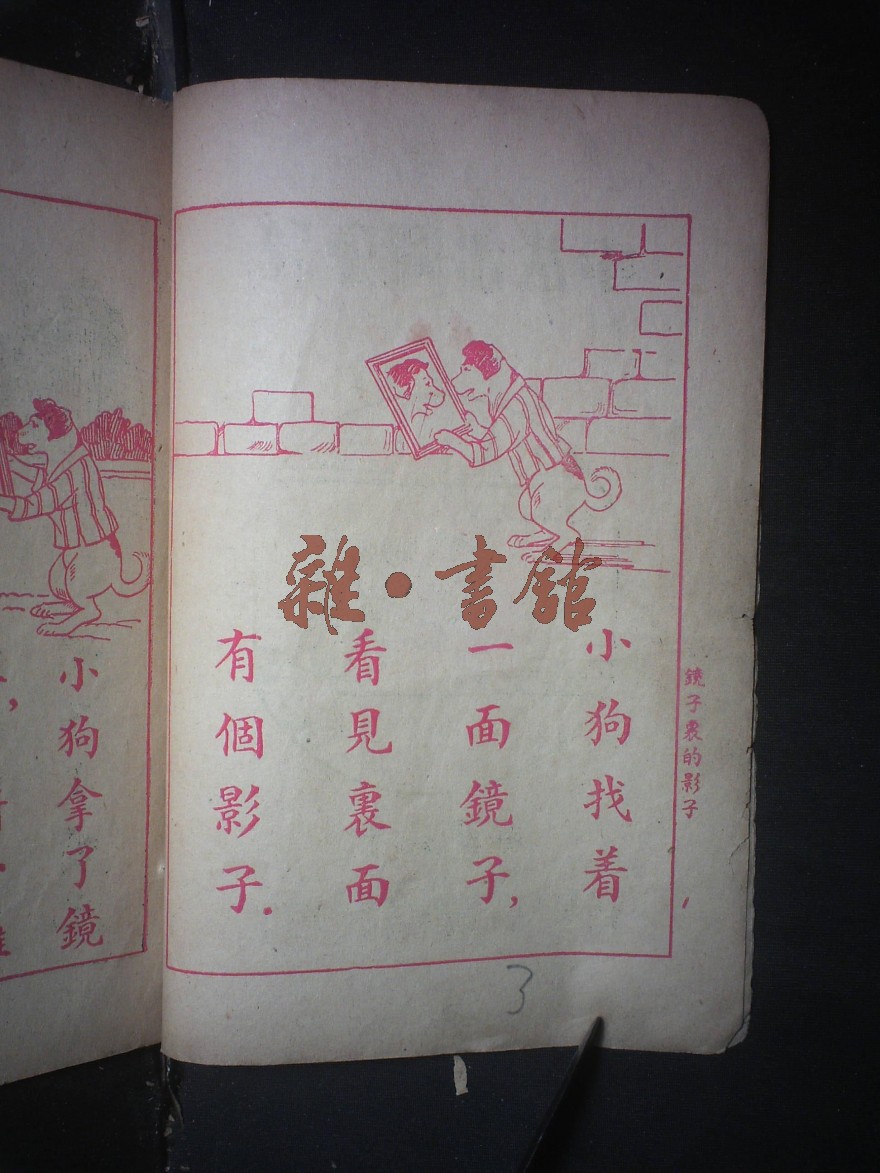 鏡子裏的影子
小狗找着
一面鏡子，
看見裏面
有個影子．
3
雜·書館
小狗拿了鏡